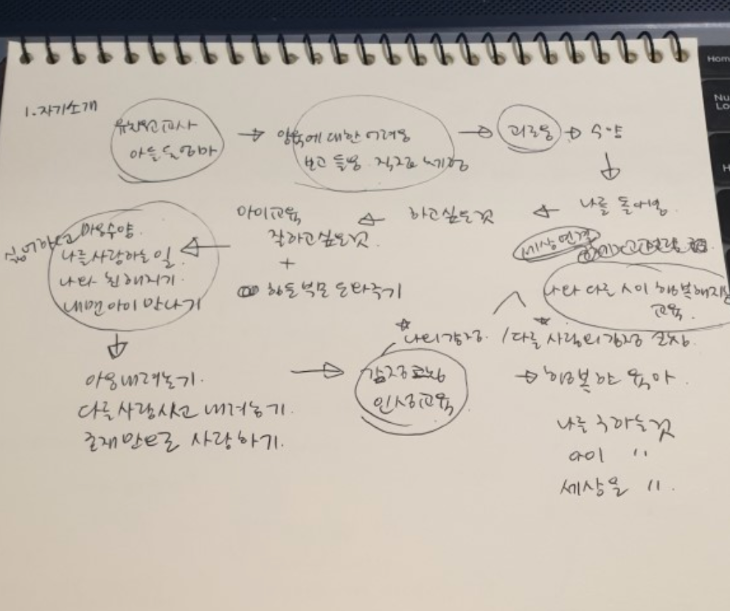 1. 자기소개
유치원교사
아들 둘 엄마
양육에 대한 어려움
보고 들음 직접 체험
괴로움
수양
나를 돌아봄
하고싶은것
아이교육
잘하고싶은것
+
학부모 도와주기
마음수양
나를 사랑하는 일
나와 친해지기
내면아이 만나기
세상연결
나와 다른 사람이 행복해지는
교육
나의감정 / 다른 사람의 감정
감정코칭
인성교육
행복한 육아
마음내려놓기
다른사람시선 내려놓기
존재만으로 사랑하기
나를 구하는것
아이 "
세상을 "
Home
Nu
Lo